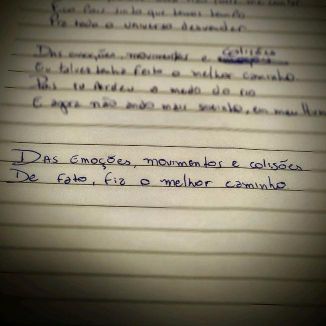 Pra todo o universo desvendar
Das emoções, movimentos e colisões
Eu talvez tenha feito o melhor caminho
Pois tu perdeu o medo do rio
E agora não ando mais sozinho, em meu
DAS EMOÇÕES, movimentos e colisões
De fato, fiz o melhor caminho